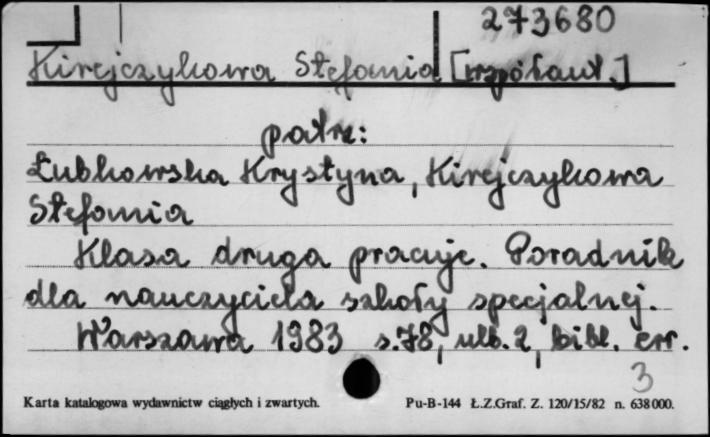 273680
Kirejczykowa Stefania [współaut.]
patrz:
Łubkowska Krystyna, Kirejczykowa
Stefania
Klasa druga pracuje. Poradnik
dla nauczyciela szkoły specjalnej.
Warszawa 1983 s. 78, nlb. 2, bibl. err.
3
Karta katalogowa wydawnictw ciągłych i zwartych. Pu-B-144 Ł.Z.Graf. Z. 120/15/82 n. 638000.